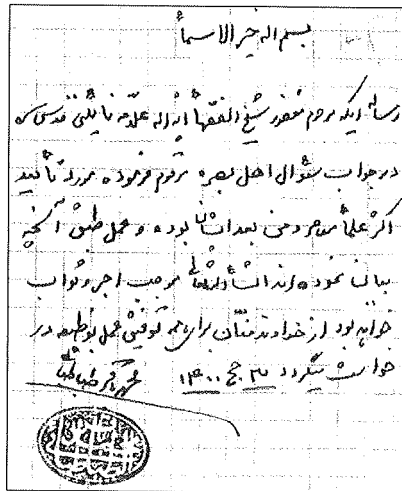 بسم اله خیر الاسماء
رساله ایکه مرحوم مغفور شیخ الفقهاء آیة اله علامه نایینی قدس سره
در جواب سئوال اهل بصره مرقوم فرموده مورد تأیید
اکثر علماء موجود من بعد ایشان بوده و عمل طبق آنچه
بیان نموده اند انشاء الله تعالی موجب اجر و ثواب
خواهد بود از خداوند منان برای همه توفیق عمل بوظیفه در
خواست میگردد ۳ حج ۱۴۰۰ طباطبائی